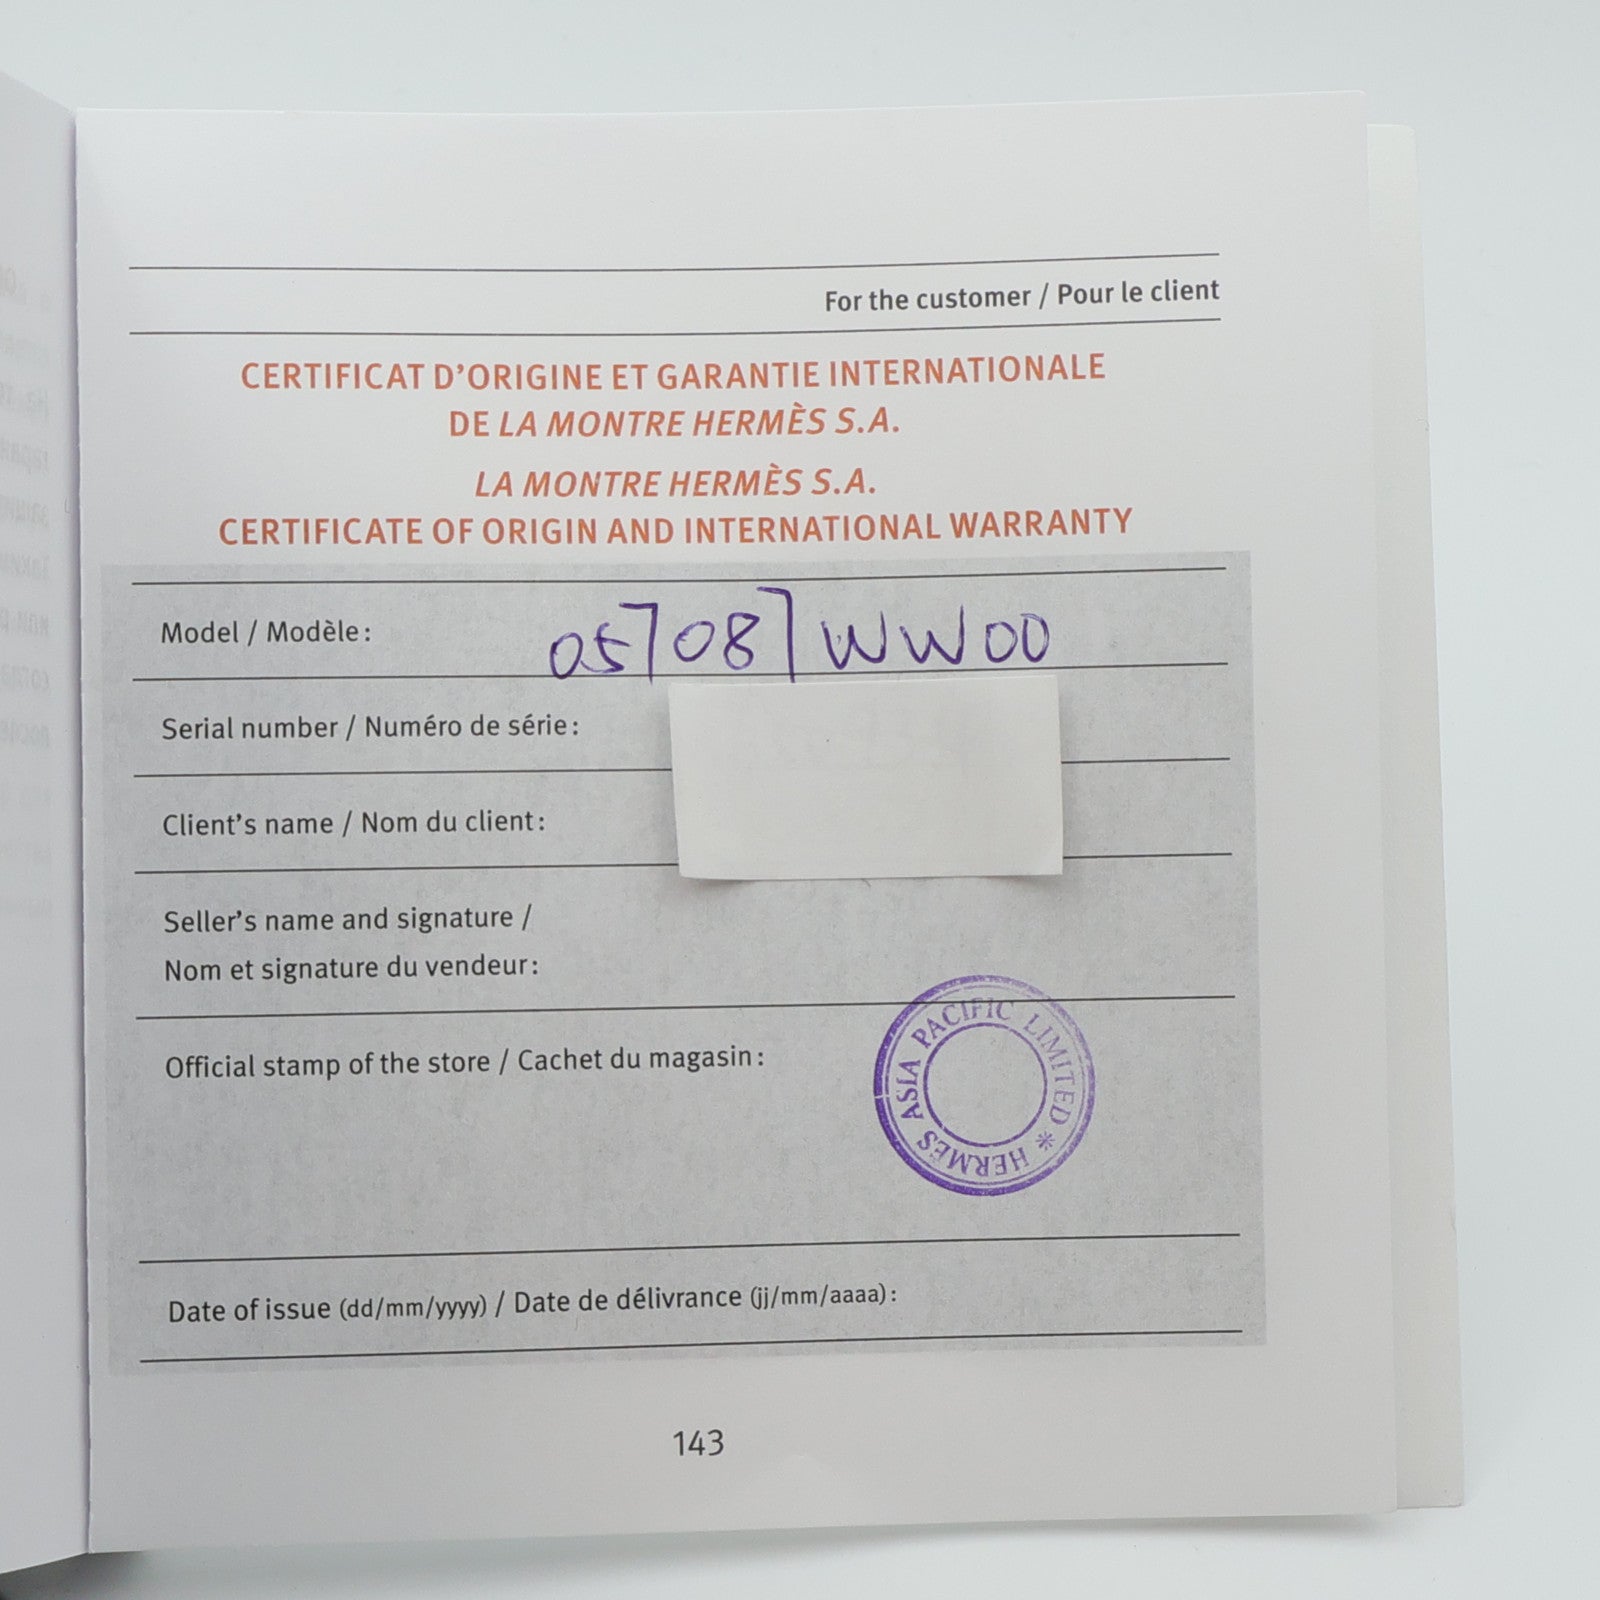 For the customer / Pour le client
CERTIFICAT D'ORIGINE ET GARANTIE INTERNATIONALE
DE LA MONTRE HERMÈS S.A.
LA MONTRE HERMÈS S.A.
CERTIFICATE OF ORIGIN AND INTERNATIONAL WARRANTY
Model / Modèle: 057087WW00
Serial number / Numéro de série:
Client's name / Nom du client:
Seller's name and signature /
Nom et signature du vendeur:
Official stamp of the store / Cachet du magasin:
HERMÈS ASIA PACIFIC LIMITED *
Date of issue (dd/mm/yyyy) / Date de délivrance (jj/mm/aaaa):
143